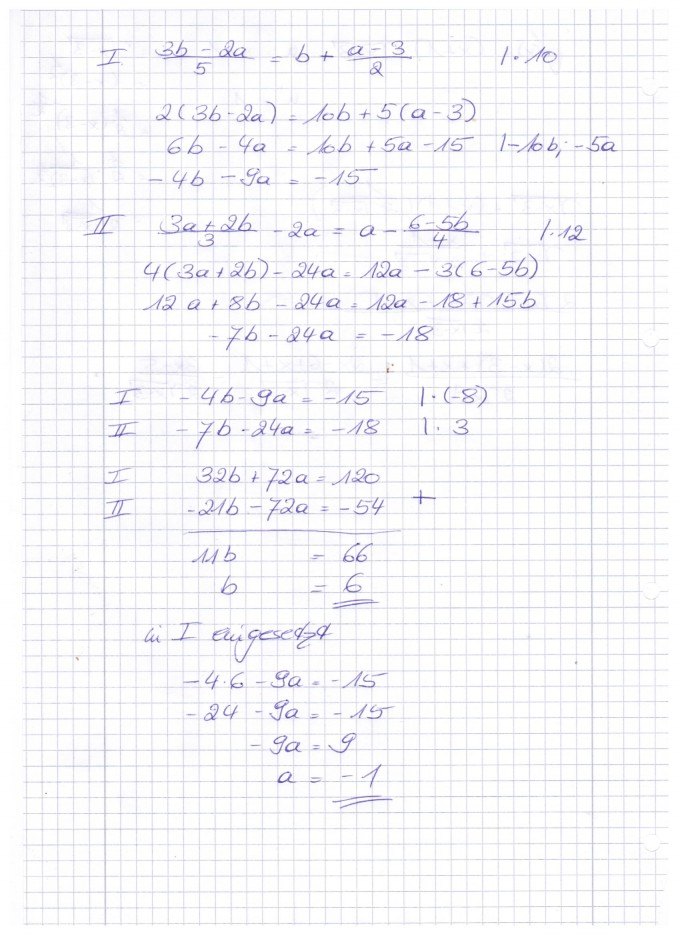 I (3b - 2a)/5 = b + (a - 3)/2 | · 10
2(3b - 2a) = 10b + 5(a - 3)
6b - 4a = 10b + 5a - 15 | - 10b; - 5a
- 4b - 9a = - 15
II (3a + 2b)/3 - 2a = a - (6 - 5b)/4 | · 12
4(3a + 2b) - 24a = 12a - 3(6 - 5b)
12a + 8b - 24a = 12a - 18 + 15b
- 7b - 24a = - 18
I - 4b - 9a = - 15 | · (-8)
II - 7b - 24a = - 18 | · 3
I 32b + 72a = 120
II - 21b - 72a = - 54 +
11b = 66
b = 6
in I eingesetzt
- 4 · 6 - 9a = - 15
- 24 - 9a = - 15
- 9a = 9
a = - 1